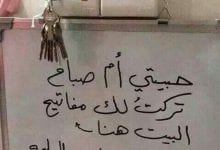 حبيبتي أم صباح
تركتُ لك مفاتيح
البيت هنا